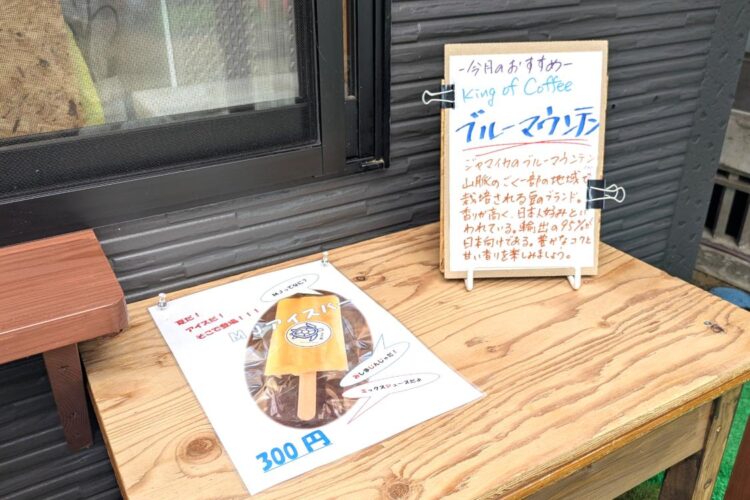 -今月のおすすめ-
King of Coffee
ブルーマウンテン
ジャマイカのブルーマウンテン
山脈のごく一部の地域で
栽培される豆のブランド。
香りが高く、日本人好みとい
われている。輸出の95%が
日本向けである。豊かなコクと
甘い香りを楽しみましょう。
夏だ!
アイスだ!
そこで登場!!!
MJアイスバー
MJってなに?
おしまじんじゃだ!
ミックスジュースだよ
300円